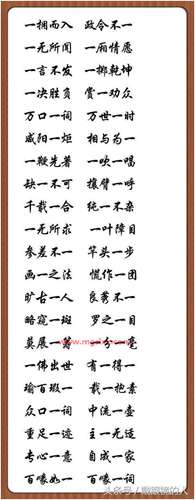 一拥而入 政令不一
一无所闻 一厢情愿
一言不发 一掷乾坤
一决胜负 赏一劝众
万口一词 万世一时
咸阳一炬 相与为一
一鞭先著 一吹一唱
缺一不可 攘臂一呼
千载一合 纯一不杂
一无所求 一叶障目
参差不一 竿头一步
画一之法 慌作一团
旷古一人 良莠不一
暗窥一斑 罗之一目
莫展一筹 一分一毫
一佛出世 有一得一
瑜百瑕一 载一抱素
众口一词 中流一壶
重足一迹 主一无适
专心一意 自成一家
百喙如一 百喙一词
头条号／戴眼镜的人